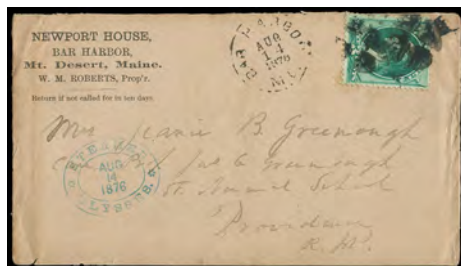 NEWPORT HOUSE,
BAR HARBOR,
Mt. Desert, Maine.
W. M. ROBERTS, Prop'r.
Return if not called for in ten days.
BAR HARBOR
AUG
14
1876
ME
Mrs Jeanie B. Greenough
Care of Jas C Greenough
St. Normal School
Providence
R. I.
STEAMER
AUG
14
1876
ULYSSES.